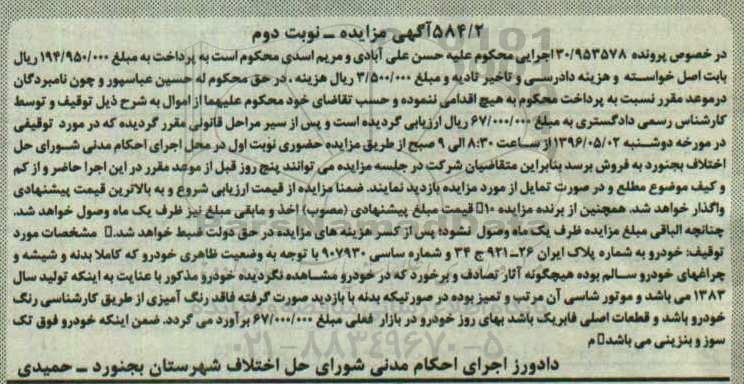 ۵۸۴/۲آگهی مزایده ـ نوبت دوم
در خصوص پرونده ۳۰/۹۵۳۵۷۸اجرایی محکوم علیه حسن علی آبادی و مریم اسدی محکوم است به پرداخت به مبلغ ۱۹۴/۹۵۰/۰۰۰ ریال
بابت اصل خواسته و هزینه دادرسی و تاخیر تادیه و مبلغ ۳/۵۰۰/۰۰۰ ریال هزینه ، در حق محکوم له حسین عباسپور و چون نامبردگان
درموعد مقرر نسبت به پرداخت محکوم به هیچ اقدامی ننموده و حسب تقاضای خود محکوم علیهما از اموال به شرح ذیل توقیف و توسط
کارشناس رسمی دادگستری به مبلغ ۶۷/۰۰۰/۰۰۰ ریال ارزیابی گردیده است و پس از سیر مراحل قانونی مقرر گردیده که در مورد توقیفی
در مورخه دوشنبه ۱۳۹۶/۰۵/۰۲از ساعت ۸:۳۰ الی ۹ صبح از طریق مزایده حضوری نوبت اول در محل اجرای احکام مدنی شورای حل
اختلاف بجنورد به فروش برسد بنابراین متقاضیان شرکت در جلسه مزایده می توانند پنج روز قبل از موعد مقرر در این اجرا حاضر و از کم
و کیف موضوع مطلع و در صورت تمایل از مورد مزایده بازدید نمایند. ضمنا مزایده از قیمت ارزیابی شروع و به بالاترین قیمت پیشنهادی
واگذار خواهد شد. همچنین از برنده مزایده ۱۰ قیمت مبلغ پیشنهادی (مصوب) اخذ و مابقی مبلغ نیز ظرف یک ماه وصول خواهد شد.
چنانچه الباقی مبلغ مزایده ظرف یک ماه وصول نشود؛ پس از کسر هزینه های مزایده در حق دولت ضبط خواهد شد. مشخصات مورد
توقیف: خودرو به شماره پلاک ایران ۲۶-۹۲۱ج ۳۴ و شماره ساسی ۹۰۷۹۳۰ با توجه به وضعیت ظاهری خودرو که کاملا بدنه و شیشه و
چراغهای خودرو سالم بوده هیچگونه آثار تصادف و برخورد که در خودرو مشاهده نگردیده خودرو مذکور با عنایت به اینکه تولید سال
۱۳۸۳ می باشد و موتور شاسی آن مرتب و تمیز بوده در صورتیکه بدنه با بازدید صورت گرفته فاقد رنگ آمیزی از طریق کارشناسی رنگ
خودرو باشد و قطعات اصلی فابریک باشد بهای روز خودرو در بازار فعلی مبلغ ۶۷/۰۰۰/۰۰۰ برآورد می گردد. ضمن اینکه خودرو فوق تک
سوز و بنزینی می باشد م
دادورز اجرای احکام مدنی شورای حل اختلاف شهرستان بجنورد ـ حمیدی
۰۲۱-۸۸۳۴۹۶۷۰-۵